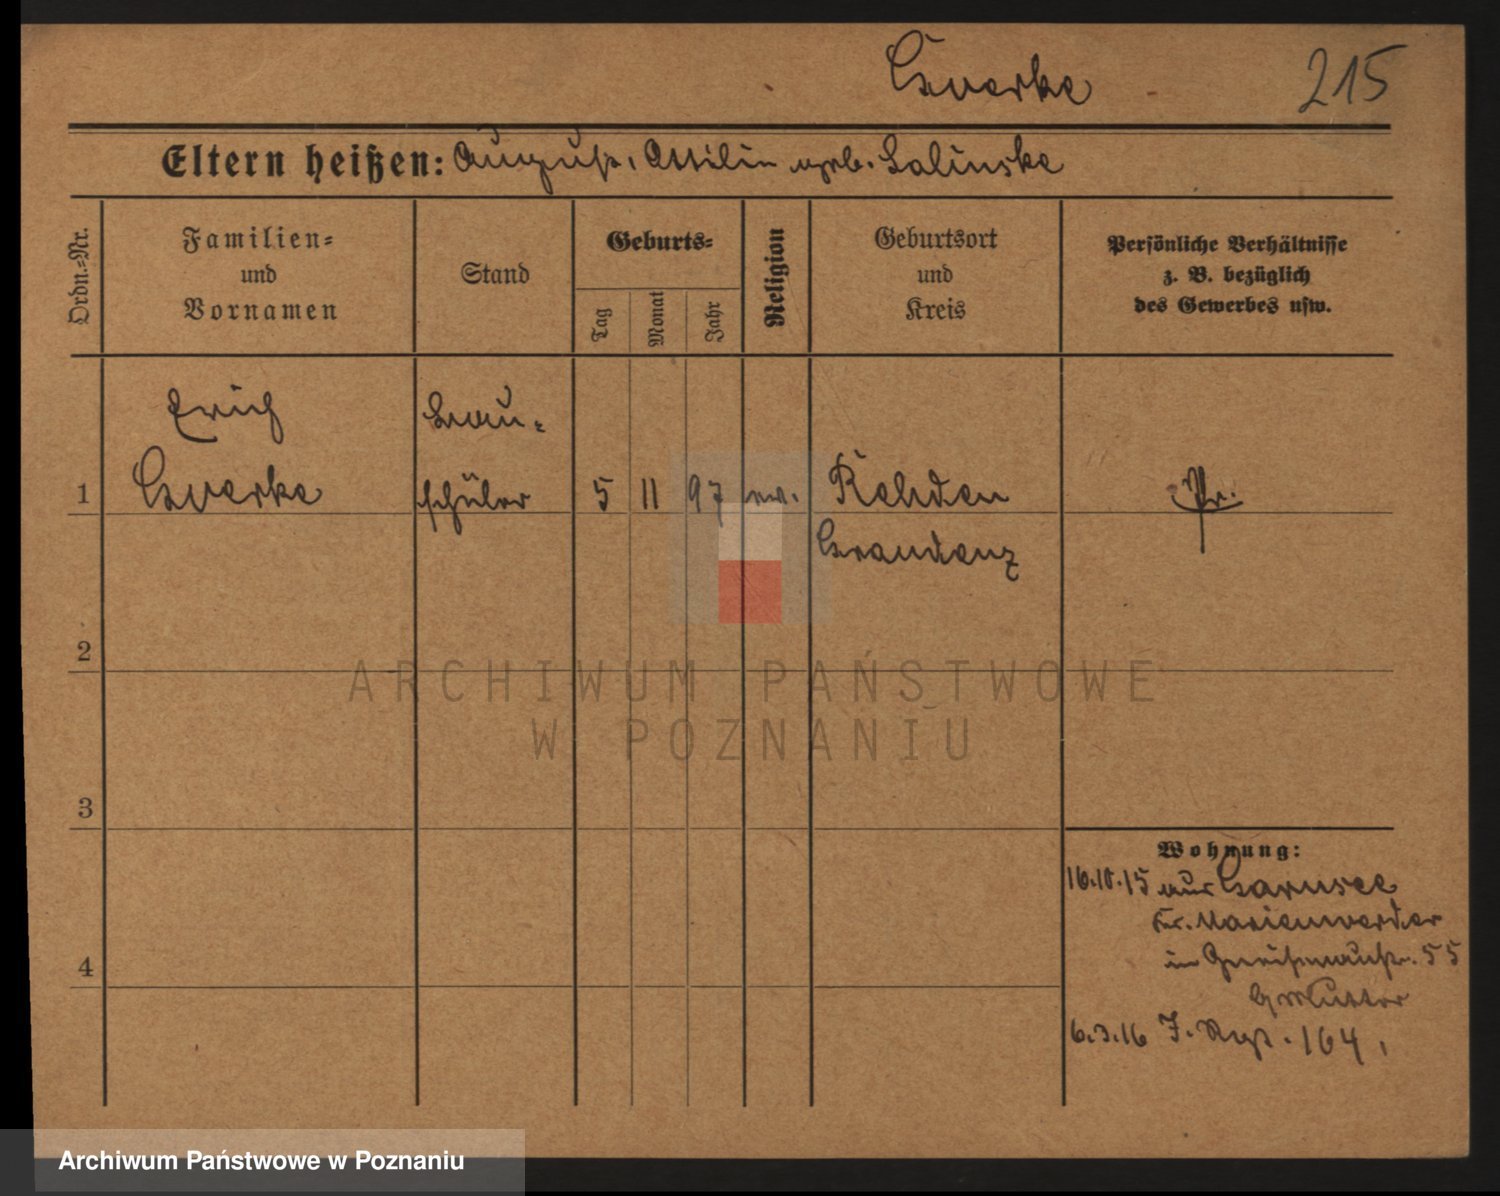 Gverke 215
Eltern heißen: August, Ottilie geb. Salinske
Ordn.-Nr.
Familien-
und
Vornamen
Stand
Geburts-
Tag
Monat
Jahr
Religion
Geburtsort
und
Kreis
Persönliche Verhältnisse
z. B. bezüglich
des Gewerbes usw.
Erich Bau-
1 Gverke schüler 5 11 97 ev. Rehden Pr.
Graudenz
2
3
4
Wohnung:
16.10.15 aus Garnsee
Kr. Marienwerder
in Gneisenaustr. 55
b/Mutter
6.3.16 J. Regt. 164,
ARCHIWUM PAŃSTWOWE
W POZNANIU
Archiwum Państwowe w Poznaniu